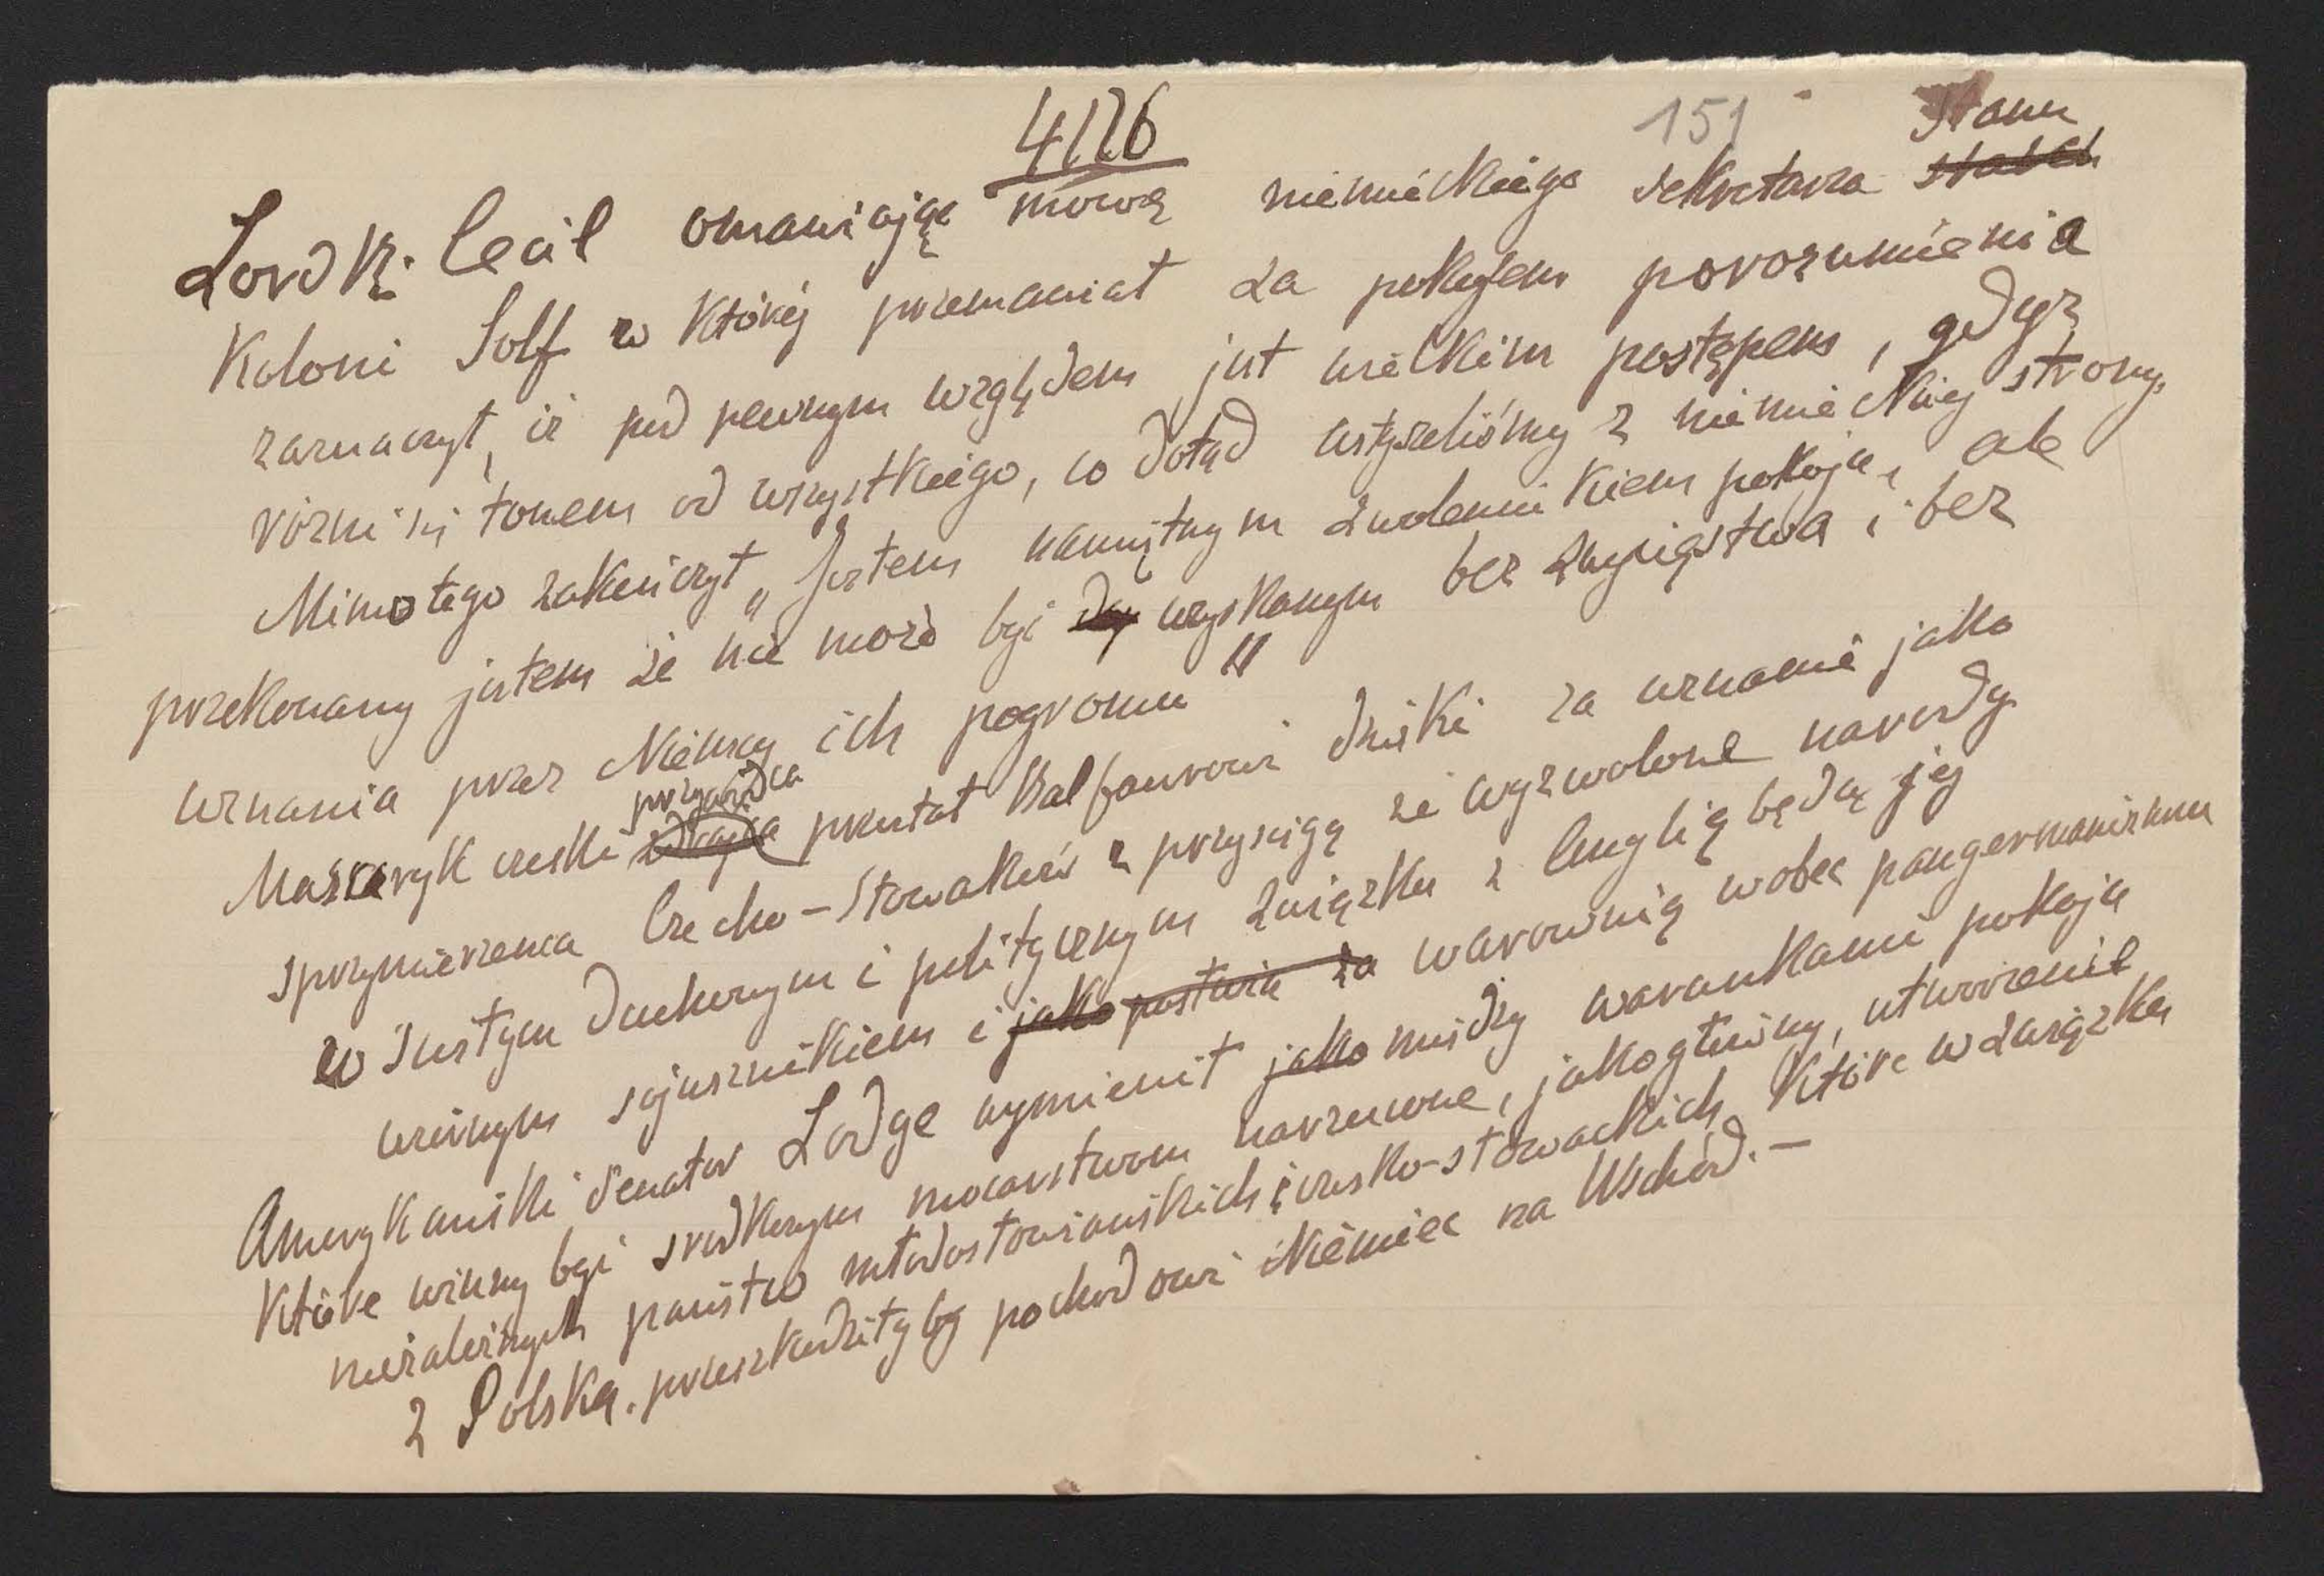 4/26
151
Lord R. Cecil omawiając mowę niemieckiego sekretarza Stanu
Koloni Solf w której przemawiał za pokojem porozumienia
zaznaczył, iż pod pewnym względem jest wielkim postępem, gdyż
różni się tonem od wszystkiego, co dotąd usłyszeliśmy z niemieckiej strony.
Mimo tego zakończył „Jestem namiętnym zwolennikiem pokoju, ale
przekonany jestem że nie może być uzyskanym bez zwycięstwa i bez
uznania przez Niemcy ich pogromu"
Massaryk czeski przywódca przesłał Balfourowi dzięki za uznanie jako
sprzymierzeńca Czecho-Słowaków z przysięgą że wyzwolone narody
w ścisłym duchowym i politycznym związku z Anglią będą jej
wiernym sojusznikiem i jako postawią za warownią wobec pangermanizmu
Amerykański senator Lodge wymienił jako między warunkami pokoju
które winny być środkowym mocarstwom narzucone, jako główny, utworzenie
niezależnych państw młodosłowiańskich i czesko-słowackich, które w związku
z Polską. przeszkodziłyby pochodowi Niemiec na Wschód.—